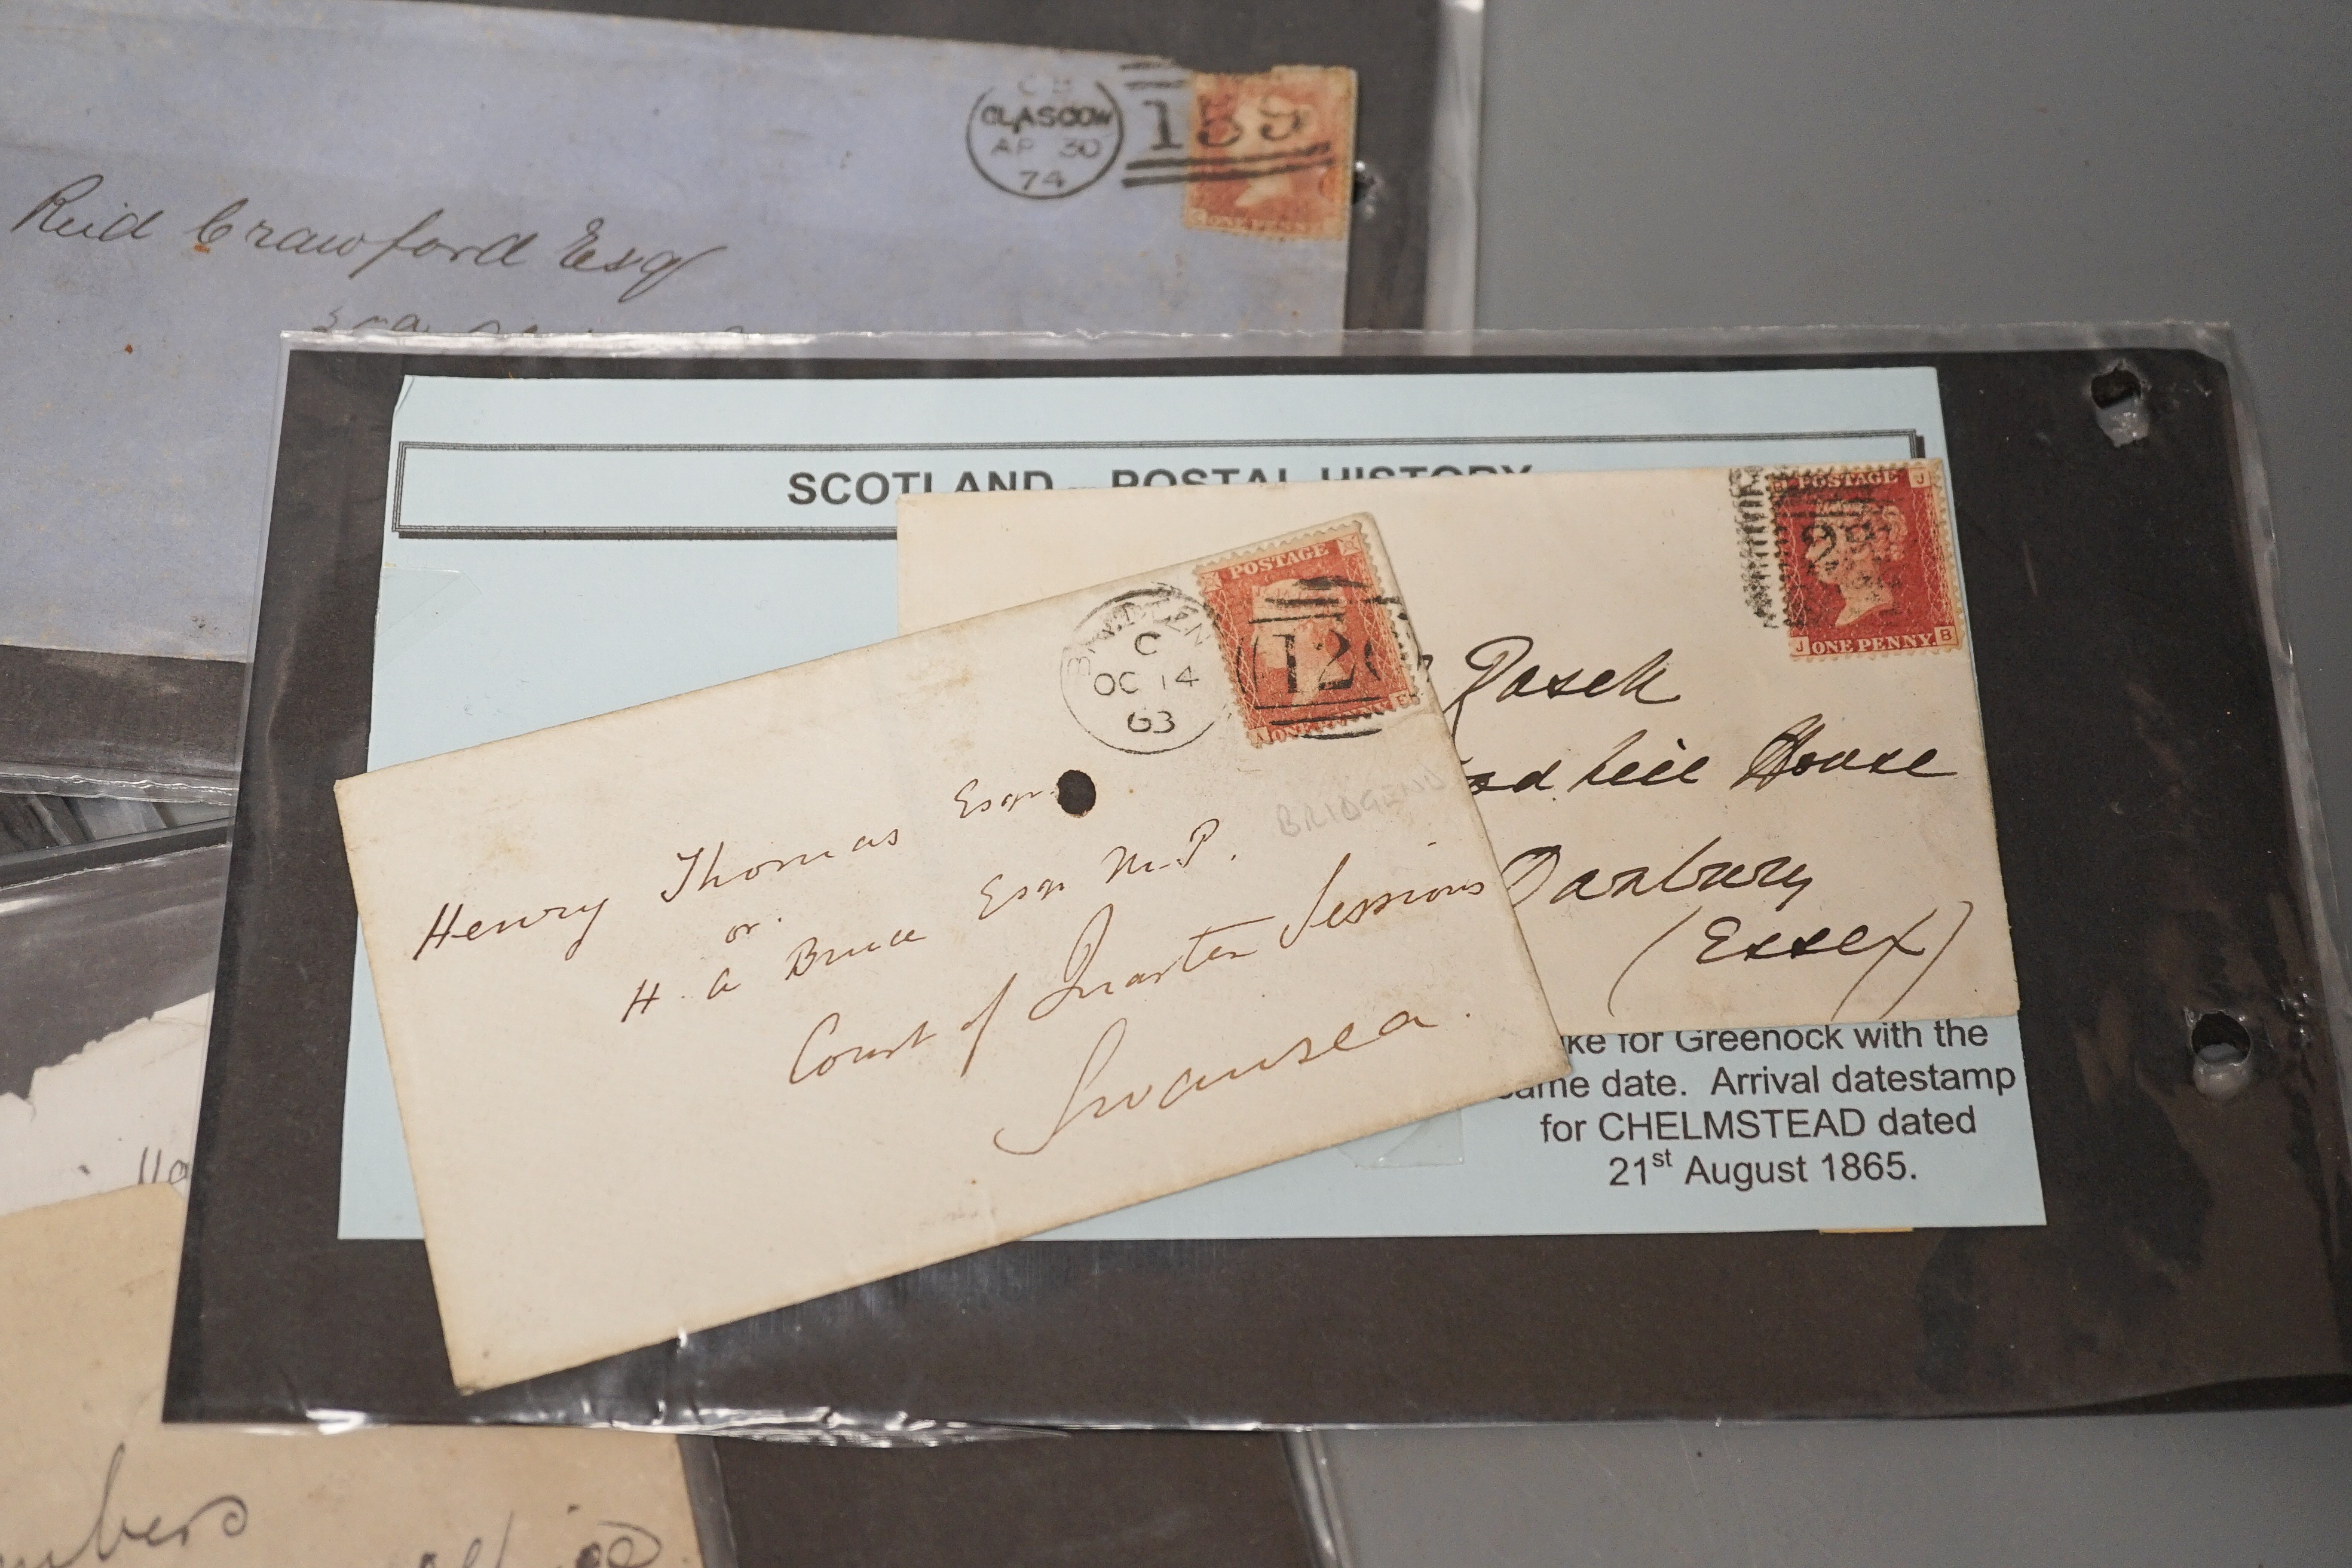 GLASGOW
AP 30
74
159
ONE PENNY
Reid Crawford Esq
SCOTLAND – POSTAL HISTORY
POSTAGE J
J ONE PENNY. B
POSTAGE
C
OC 14
63
ONE PENNY
BRIDGEND
Henry Thomas Esqr.
or.
H. A Bruce Esqr M.P.
Court of Quarter Sessions
Swansea.
Rasch
hill House
Danbury
(Essex)
for Greenock with the
same date. Arrival datestamp
for CHELMSTEAD dated
21st August 1865.